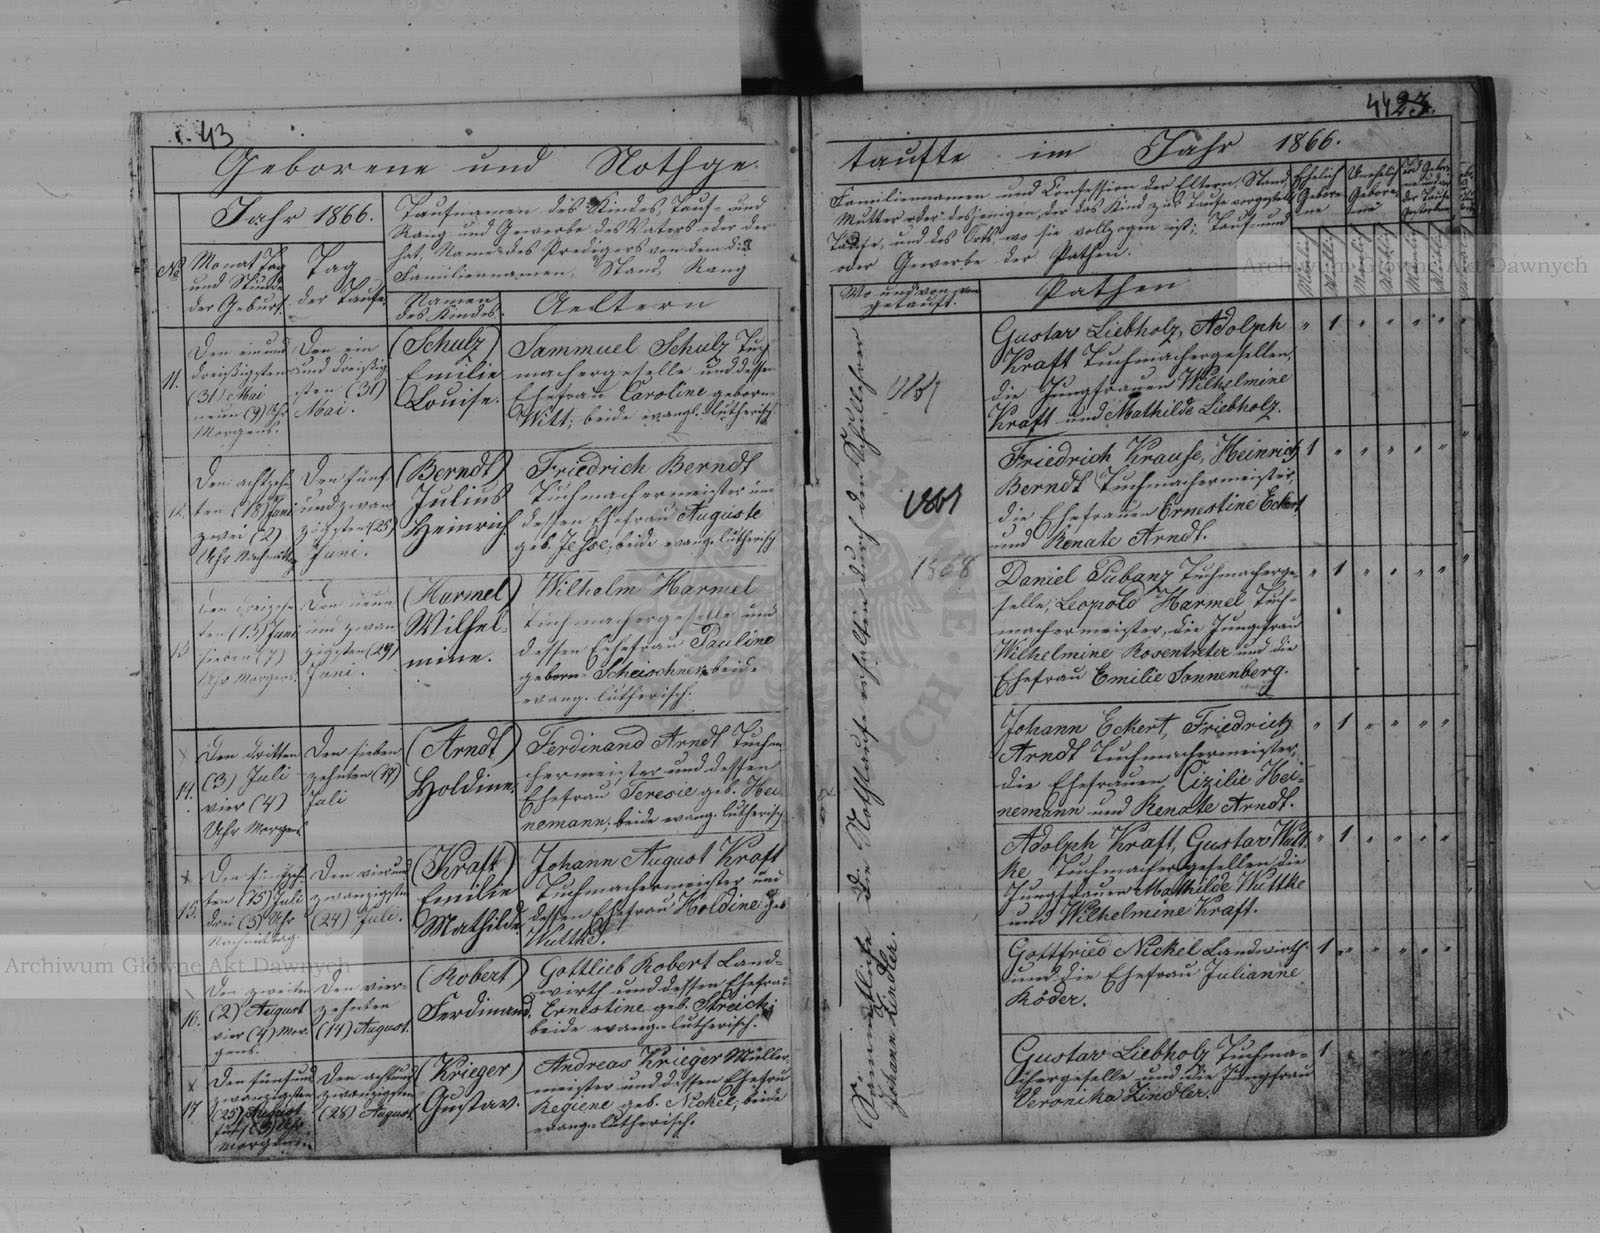 43
Geborene und Nothge-
Jahr 1866.
No
Monat Tag
und Stunde
der Geburt.
Tag
der Taufe.
Taufnamen des Kindes, Tauf- und
Rang und Gewerbe des Vaters oder der
hat, Name des Predigers von dem die
Familiennamen, Stand, Rang
Namen
des Kindes.
Aeltern
11.
Den ein und
dreißigsten
(31) Mai
neun (9) Uhr
Morgens.
Den ein
und dreißig
sten (31)
Mai.
(Schulz)
Emilie
Louise.
Sammuel Schulz Tuch
machergeselle und dessen
Ehefrau Caroline geborn
Witt; beide evangl. lutherisch
12.
Den achtzehn
ten (18) Juni
zwei (2)
Uhr Nachmittag
Den fünf
und zwan
zigsten (25)
Juni.
(Berndt)
Julius
Heinrich.
Friedrich Berndt
Tuchmachermeister und
dessen Ehefrau Auguste
geb. Jesse; beide evang. lutherisch
13.
ten (13) Juni
sieben (7)
Uhr Morgens.
Den neun
und zwan
zigsten (29)
Juni.
(Harmel)
Wilhel-
mine.
Wilhelm Harmel
Tuchmachergeselle und
dessen Ehefrau Pauline
geborn beide
evang. lutherisch.
14.
Den dritten
(3) Juli
vier (4)
Uhr Morgens
Den sieben
zehnten (17)
Juli
(Arndt)
Holdine.
Ferdinand Arndt Tuchma
chermeister und dessen
Ehefrau Teresie geb. Hei
nemann; beide evang. lutherisch
15.
Den fünfzehn
ten (15) Juli
drei (3) Uhr
Nachmittag.
Den vier und
zwanzigsten
(24) Juli.
(Kraft)
Emilie
Mathilde.
Johann August Kraft
Tuchmachermeister und
dessen Ehefrau Holdine geb
Wuttke.
16.
Den zweiten
(2) August
vier (4) Mor
gens.
Den vier-
zehnten
(14) August.
(Robert)
Ferdinand.
Gottlieb Robert Land-
wirth und dessen Ehefrau
Ernestine geb. Streich;
beide evang. lutherisch.
17
Den fünf und
zwanzigsten
(25) August
fünf (5) Uhr
Morgens.
Den acht und
zwanzigsten
(28) August.
(Krieger)
Gustav.
Andreas Krieger Müller
meister und dessen Ehefrau
Regiene geb. Nickel; beide
evang. lutherisch.
44 23.
taufte im Jahr 1866.
Familiennamen und Confession der Eltern, Stand,
Mutter oder desjenigen, der das Kind zur Taufe vorgestellt
Taufe, und des Orts, wo sie vollzogen ist; Tauf- und
oder Gewerbe der Pathen.
Ehelich
Gebore
ne
Unehelich
Gebore-
ne
Männlich
Weiblich
Männlich
Weiblich
Männlich
Weiblich
Wo und von wem
getauft.
Pathen
Sämmtliche die Nothtaufe erhalten durch den Schullehrer
Johann Zindler.
1868
Gustav Liebholz, Adolph " 1 " " " "
Kraft Tuchmachergesellen,
die Jungfrauen Wilhelmine
Kraft und Mathilde Liebholz.
Friedrich Krause, Heinrich 1 " " " " "
Berndt Tuchmachermeister,
die Ehefrauen Ernestine Eckert,
und Renate Arndt.
Daniel Tuchmacherge " 1 " " " "
selle, Leopold Harmel Tuch-
machermeister, die Jungfrau
Wilhelmine Rosentreter und die
Ehefrau Emilie Sonnenberg.
Johann Eckert, Friedrich " 1 " " " "
Arndt Tuchmachermeister,
die Ehefrauen Cizilie Hei-
nemann und Renate Arndt.
Adolph Kraft, Gustav Wutt- " 1 " " " "
ke Tuchmachergesellen, die
Jungfrauen Mathilde Wuttke
und Wilhelmine Kraft.
Gottfried Nickel Landwirth 1 " " " " "
und die Ehefrau Julianne
Röder.
Gustav Liebholz Tuchma- 1 " " " " "
chergeselle und die Jungfrau
Veronika Zindler.
Archiwum Główne Akt Dawnych
Archiwum Główne Akt Dawnych